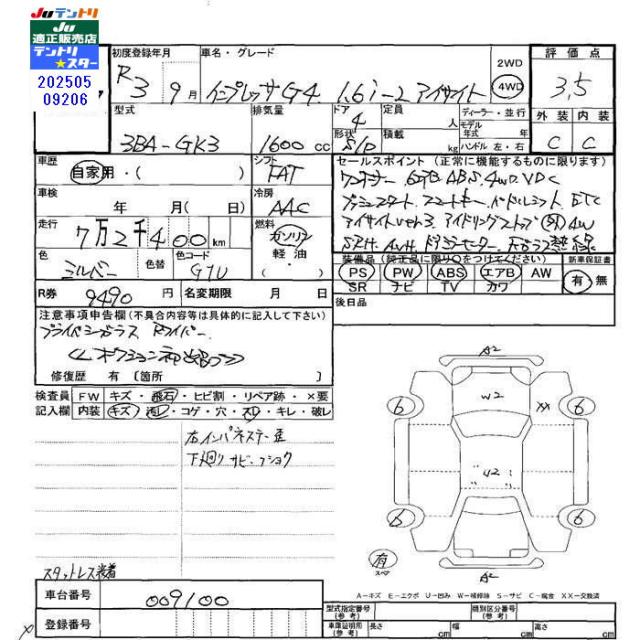 Juテントリ
Ju
適正販売店
テントリ
★スター
202505
09206
初度登録年月
R3 9月
車名・グレード
インプレッサG4 1.6i-2 アイサイト
2WD
4WD
評価点
3.5
型式
3BA-GK3
排気量
1600cc
ドア
4
形状
S/D
定員 人
積載 kg
ディーラー・並行
モデル年式 年
ハンドル 左・右
外装 内装
C C
車歴
自家用・( )
シフト
FAT
セールスポイント(正常に機能するものに限ります)
ABS 4WD VDC
プッシュスタート スマートキー パドルシフト ETC
アイサイトver3 アイドリングストップ 4W
車検
年 月( 日)
冷房
AAC
走行
7万2千400km
燃料
ガソリン
軽油・
( )
色
シルバー
色替
色コード
G1U
装備品(純正品に限り○をつけてください)
新車保証書
PS PW ABS エアB AW
SR ナビ TV カワ
有 無
R券 9490円
名変期限 月 日
後日品
注意事項申告欄(不具合内容等は具体的に記入して下さい)
プライバシーガラス Rワイパー
修復歴 有 〔箇所 〕
検査員記入欄
FW キズ・飛石・ヒビ割・リペア跡・×要
内装 キズ・汚レ・コゲ・穴・スレ・キレ・破レ
右インパネステー歪
下廻りサビ・フショク
A2
W2
6 6
XX
U2
6 6
有
スペア
A2
スタットレス装着
A-キズ E-エクボ U-凹み W-補修跡 S-サビ C-腐食 XX-交換済
車台番号 009100
登録番号
型式指定番号(参考)
類別区分番号(参考)
車庫証明用(参考) 長さ cm 幅 cm 高さ cm